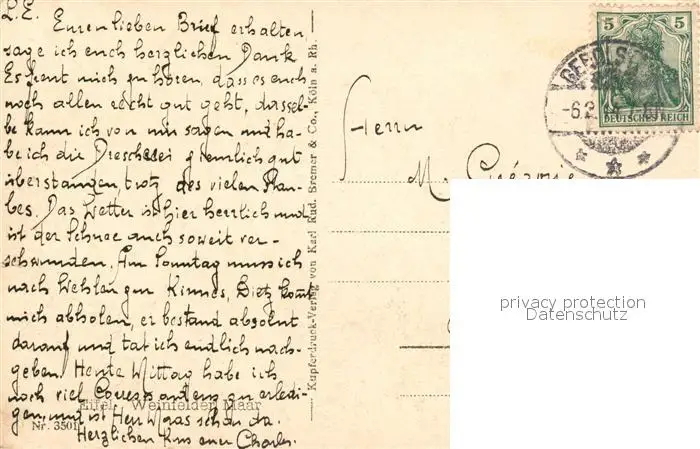 L. E.
Euren lieben Brief erhalten,
sage ich euch herzlichen Dank
Es freut mich zu hören, dass es euch
noch allen recht gut geht, dassel-
be kann ich von mir sagen und ha-
be ich die Drescherei ziemlich gut
überstanden, trotz des vielen Stau-
bes. Das Wetter ist hier herrlich und
ist der Schnee auch soweit ver-
schwunden. Am Sonntag muss ich
nach Wehlen zur Kirmes, Dietz kommt
mich abholen, er bestand absolut
darauf und tat ich endlich nach-
geben. Heute Mittag habe ich
noch viel Correspondenz zu erledi-
gen, und ist Herr Waas schon da.
Herzlichen Kuss euer Charles.
Eifel. Weinfelder Maar
Nr. 3501
Kupferdruck-Verlag von Karl Rud. Bremer & Co., Köln a. Rh.
Herrn
M.
5 5
DEUTSCHES REICH
GEROLST
-6.2.
privacy protection
Datenschutz